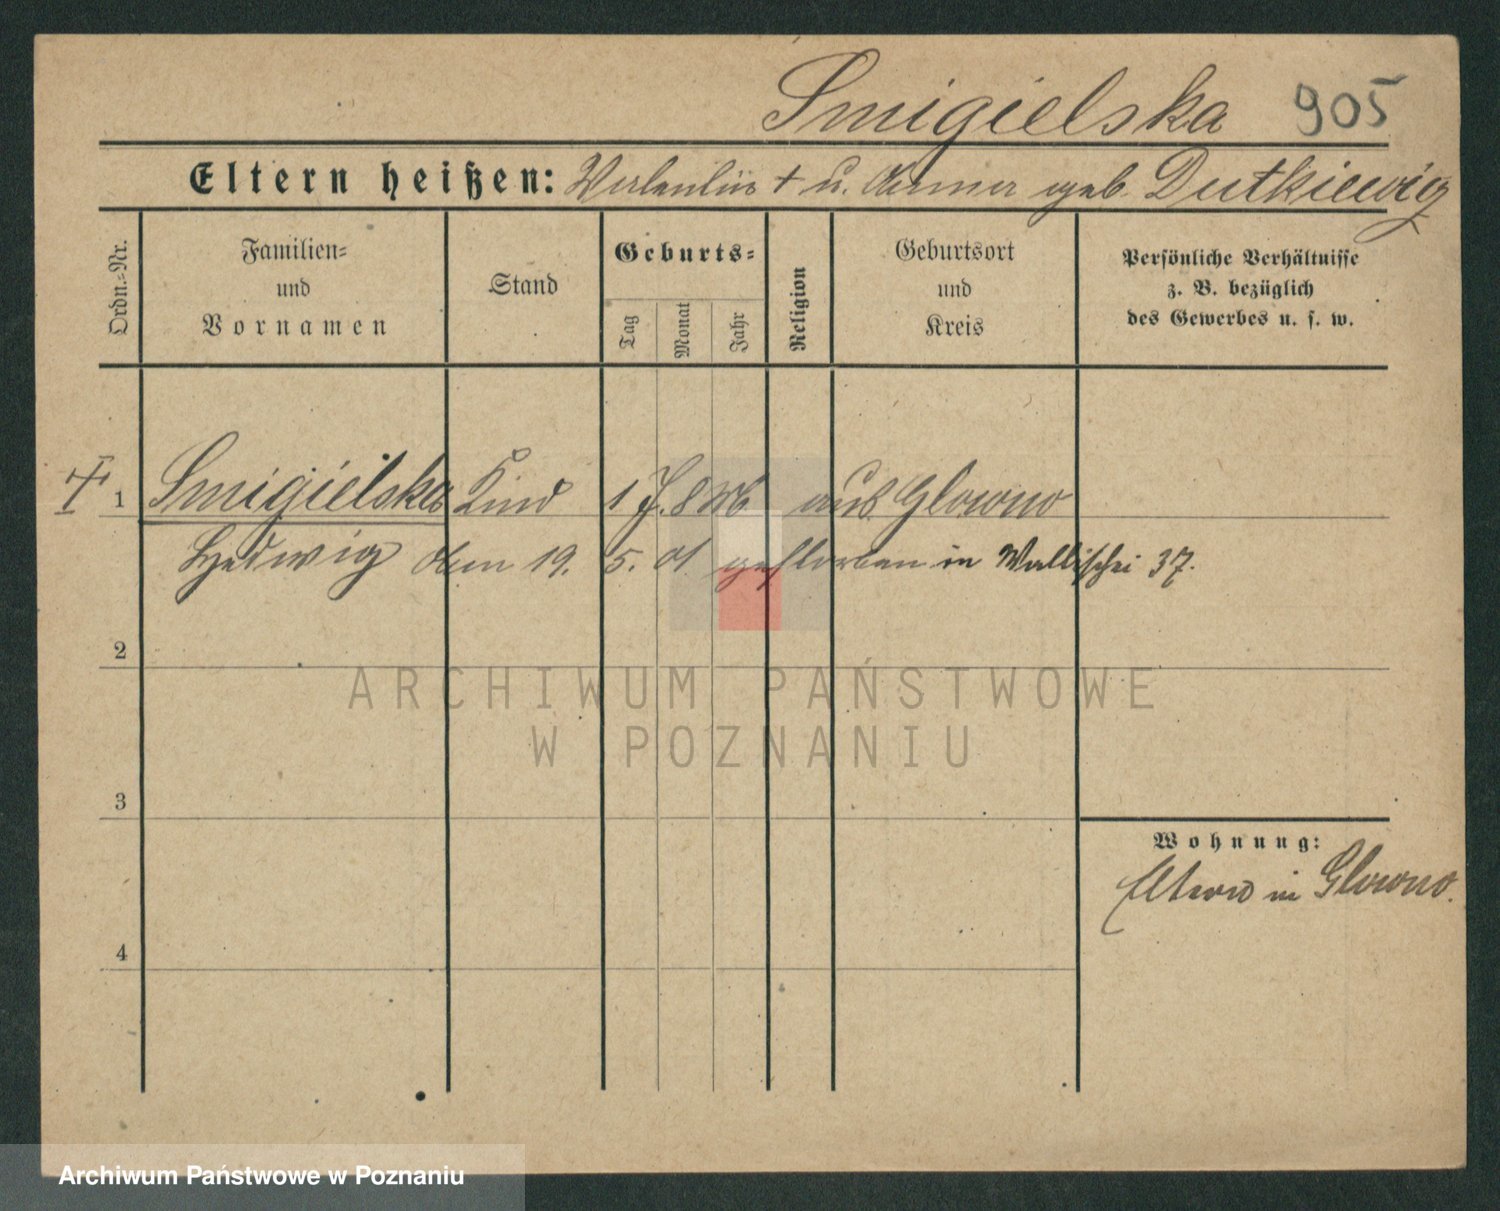 Smigielska 905
Eltern heißen: Valentin † u. Anna geb. Dutkiewicz
Ordn.-Nr.
Familien-
und
Vornamen
Stand
Geburts-
Tag
Monat
Jahr
Religion
Geburtsort
und
Kreis
Persönliche Verhältnisse
z. B. bezüglich
des Gewerbes u. s. w.
† 1 Smigielska Kind 1 J. 8 M aus Glowno
Hedwig Am 19. 5. 01 gestorben in Wallischei 37.
2
ARCHIWUM PAŃSTWOWE
W POZNANIU
3
Wohnung:
Eltern in Glowno.
4
Archiwum Państwowe w Poznaniu